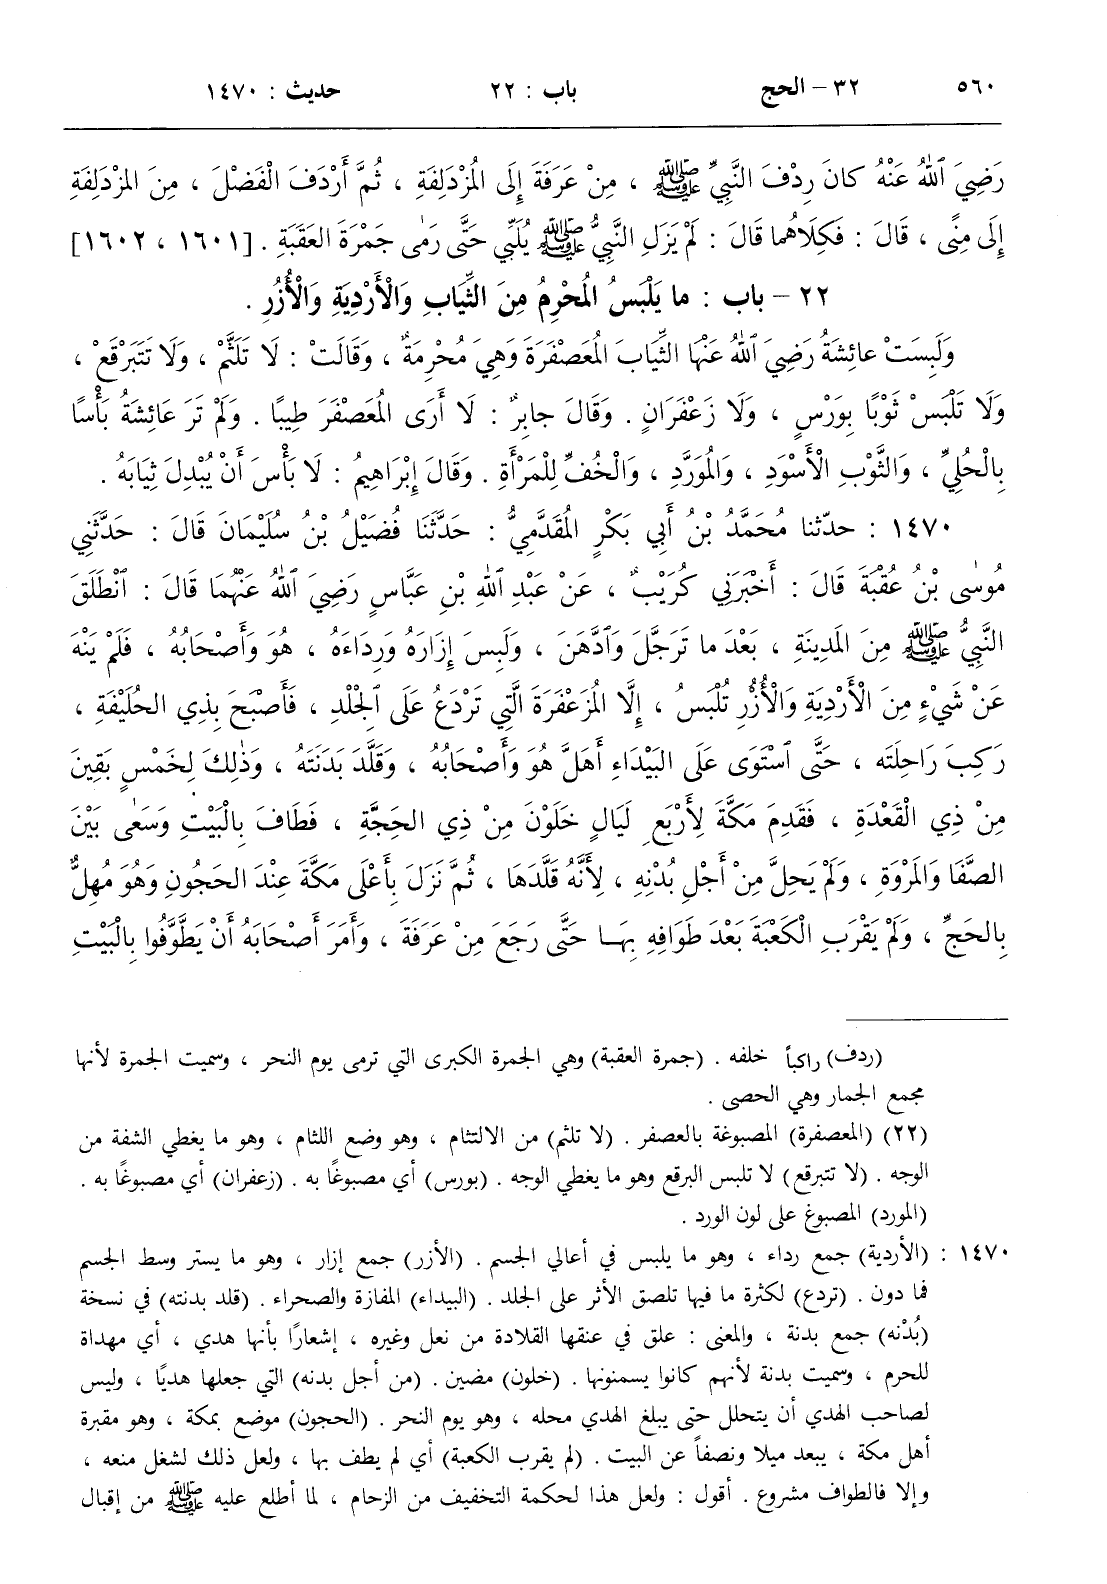 ٥٦٠ ٣٢ - الحج باب : ٢٢ حديث : ١٤٧٠
رَضِيَ ٱللهُ عَنْهُ كانَ رِدْفَ النَّبِيِّ ﷺ ، مِنْ عَرَفَةَ إِلَى المُزْدَلِفَةِ ، ثُمَّ أَرْدَفَ الْفَضْلَ ، مِنَ المُزْدَلِفَةِ
إِلَى مِنًى ، قَالَ : فَكِلَاهُما قَالَ : لَمْ يَزَلِ النَّبِيُّ ﷺ يُلَبِّي حَتَّى رَمٰى جَمْرَةَ العَقَبَةِ . [١٦٠١ ، ١٦٠٢]
٢٢ - باب : ما يَلْبَسُ الْمُحْرِمُ مِنَ الثِّيَابِ وَالْأَرْدِيَةِ وَالْأُزُرِ .
وَلَبِسَتْ عائِشَةُ رَضِيَ ٱللهُ عَنْهَا الثِّيَابَ المُعَصْفَرَةَ وَهِيَ مُحْرِمَةٌ ، وَقَالَتْ : لَا تَلَثَّمْ ، وَلَا تَتَبَرْقَعْ ،
وَلَا تَلْبَسْ ثَوْبًا بِوَرْسٍ ، وَلَا زَعْفَرَانٍ . وَقَالَ جابِرٌ : لَا أَرَى المُعَصْفَرَ طِيبًا . وَلَمْ تَرَ عَائِشَةُ بَأْسًا
بِالْحُلِيِّ ، وَالثَّوْبِ الْأَسْوَدِ ، وَالْمُوَرَّدِ ، وَالْخُفِّ لِلْمَرْأَةِ . وَقَالَ إِبْرَاهِيمُ : لَا بَأْسَ أَنْ يُبْدِلَ ثِيَابَهُ .
١٤٧٠ : حدّثنا مُحَمَّدُ بْنُ أَبِي بَكْرٍ المُقَدَّمِيُّ : حَدَّثَنَا فُضَيْلُ بْنُ سُلَيْمَانَ قَالَ : حَدَّثَنِي
مُوسٰى بْنُ عُقْبَةَ قَالَ : أَخْبَرَنِي كُرَيْبٌ ، عَنْ عَبْدِ اللهِ بْنِ عَبَّاسٍ رَضِيَ ٱللهُ عَنْهُمَا قَالَ : ٱنْطَلَقَ
النَّبِيُّ ﷺ مِنَ المَدِينَةِ ، بَعْدَ ما تَرَجَّلَ وَٱدَّهَنَ ، وَلَبِسَ إِزَارَهُ وَرِدَاءَهُ ، هُوَ وَأَصْحَابُهُ ، فَلَمْ يَنْهَ
عَنْ شَيْءٍ مِنَ الْأَرْدِيَةِ وَالْأُزُرِ تُلْبَسُ ، إِلَّا المُزَعْفَرَةَ الَّتِي تَرْدَعُ عَلَى ٱلْجِلْدِ ، فَأَصْبَحَ بِذِي الحُلَيْفَةِ ،
رَكِبَ رَاحِلَتَه ، حَتَّى ٱسْتَوَى عَلَى البَيْدَاءِ أَهَلَّ هُوَ وَأَصْحَابُهُ ، وَقَلَّدَ بَدَنَتَهُ ، وَذٰلِكَ لِخَمْسٍ بَقِينَ
مِنْ ذِي الْقَعْدَةِ ، فَقَدِمَ مَكَّةَ لِأَرْبَعِ لَيَالٍ خَلَوْنَ مِنْ ذِي الحَجَّةِ ، فَطَافَ بِالْبَيْتِ وَسَعٰى بَيْنَ
الصَّفَا وَالمَرْوَةِ ، وَلَمْ يَحِلَّ مِنْ أَجْلِ بُدْنِهِ ، لِأَنَّهُ قَلَّدَهَا ، ثُمَّ نَزَلَ بِأَعْلَى مَكَّةَ عِنْدَ الحَجُونِ وَهُوَ مُهِلٌّ
بِالحَجِّ ، وَلَمْ يَقْرَبِ الْكَعْبَةَ بَعْدَ طَوَافِهِ بِهَا حَتَّى رَجَعَ مِنْ عَرَفَةَ ، وَأَمَرَ أَصْحَابَهُ أَنْ يَطَّوَّفُوا بِالْبَيْتِ
(ردف) راكباً خلفه . (جمرة العقبة) وهي الجمرة الكبرى التي ترمى يوم النحر ، وسميت الجمرة لأنها
مجمع الجمار وهي الحصى .
(٢٢) (المعصفرة) المصبوغة بالعصفر . (لا تلثم) من الالتثام ، وهو وضع اللثام ، وهو ما يغطي الشفة من
الوجه . (لا تتبرقع) لا تلبس البرقع وهو ما يغطي الوجه . (بورس) أي مصبوغًا به . (زعفران) أي مصبوغًا به .
(المورد) المصبوغ على لون الورد .
١٤٧٠ : (الأردية) جمع رداء ، وهو ما يلبس في أعالي الجسم . (الأزر) جمع إزار ، وهو ما يستر وسط الجسم
فما دون . (تردع) لكثرة ما فيها تلصق الأثر على الجلد . (البيداء) المفازة والصحراء . (قلد بدنته) في نسخة
(بُدْنه) جمع بدنة ، والمعنى : علق في عنقها القلادة من نعل وغيره ، إشعارًا بأنها هدي ، أي مهداة
للحرم ، وسميت بدنة لأنهم كانوا يسمنونها . (خلون) مضين . (من أجل بدنه) التي جعلها هديًا ، وليس
لصاحب الهدي أن يتحلل حتى يبلغ الهدي محله ، وهو يوم النحر . (الحجون) موضع بمكة ، وهو مقبرة
أهل مكة ، يبعد ميلا ونصفاً عن البيت . (لم يقرب الكعبة) أي لم يطف بها ، ولعل ذلك لشغل منعه ،
وإلا فالطواف مشروع . أقول : ولعل هذا لحكمة التخفيف من الزحام ، لما أطلع عليه ﷺ من إقبال